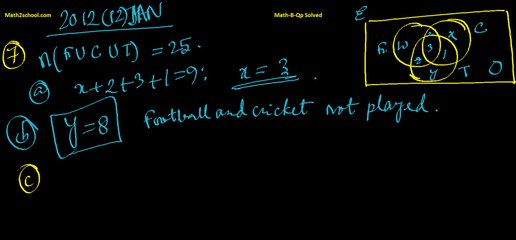 Math2school.com
Math-B-Qp Solved
2012(12)JAN
7
n(FUCUT) = 25.
a x+2+3+1=9; x = 3.
b y=8 Football and cricket not played.
c
E
F W x C
3
2 1
y T O